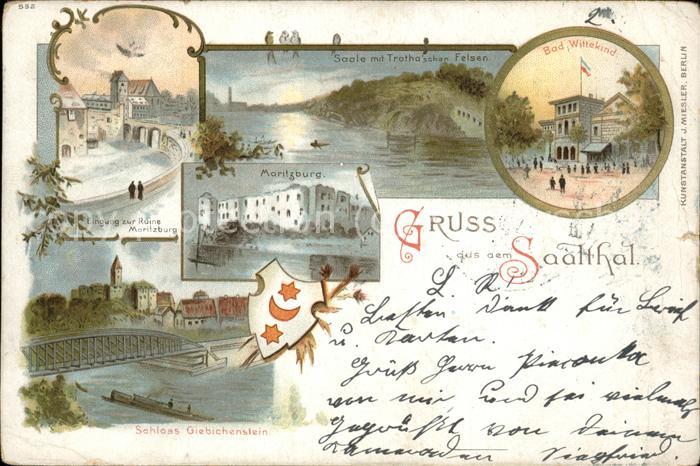 552
Saale mit Trotha'schen Felsen.
Bad Wittekind.
KUNSTANSTALT J. MIESLER, BERLIN
Moritzburg.
Eingang zur Ruine
Moritzburg
GRUSS
aus dem Saalthal.
L. R.!
Besten Dank für Brief
u. Karten.
Gruß Herrn
von mir und sei vielmals
gegrüßt von deinem
Kameraden Siegfried.
Schloss Giebichenstein.